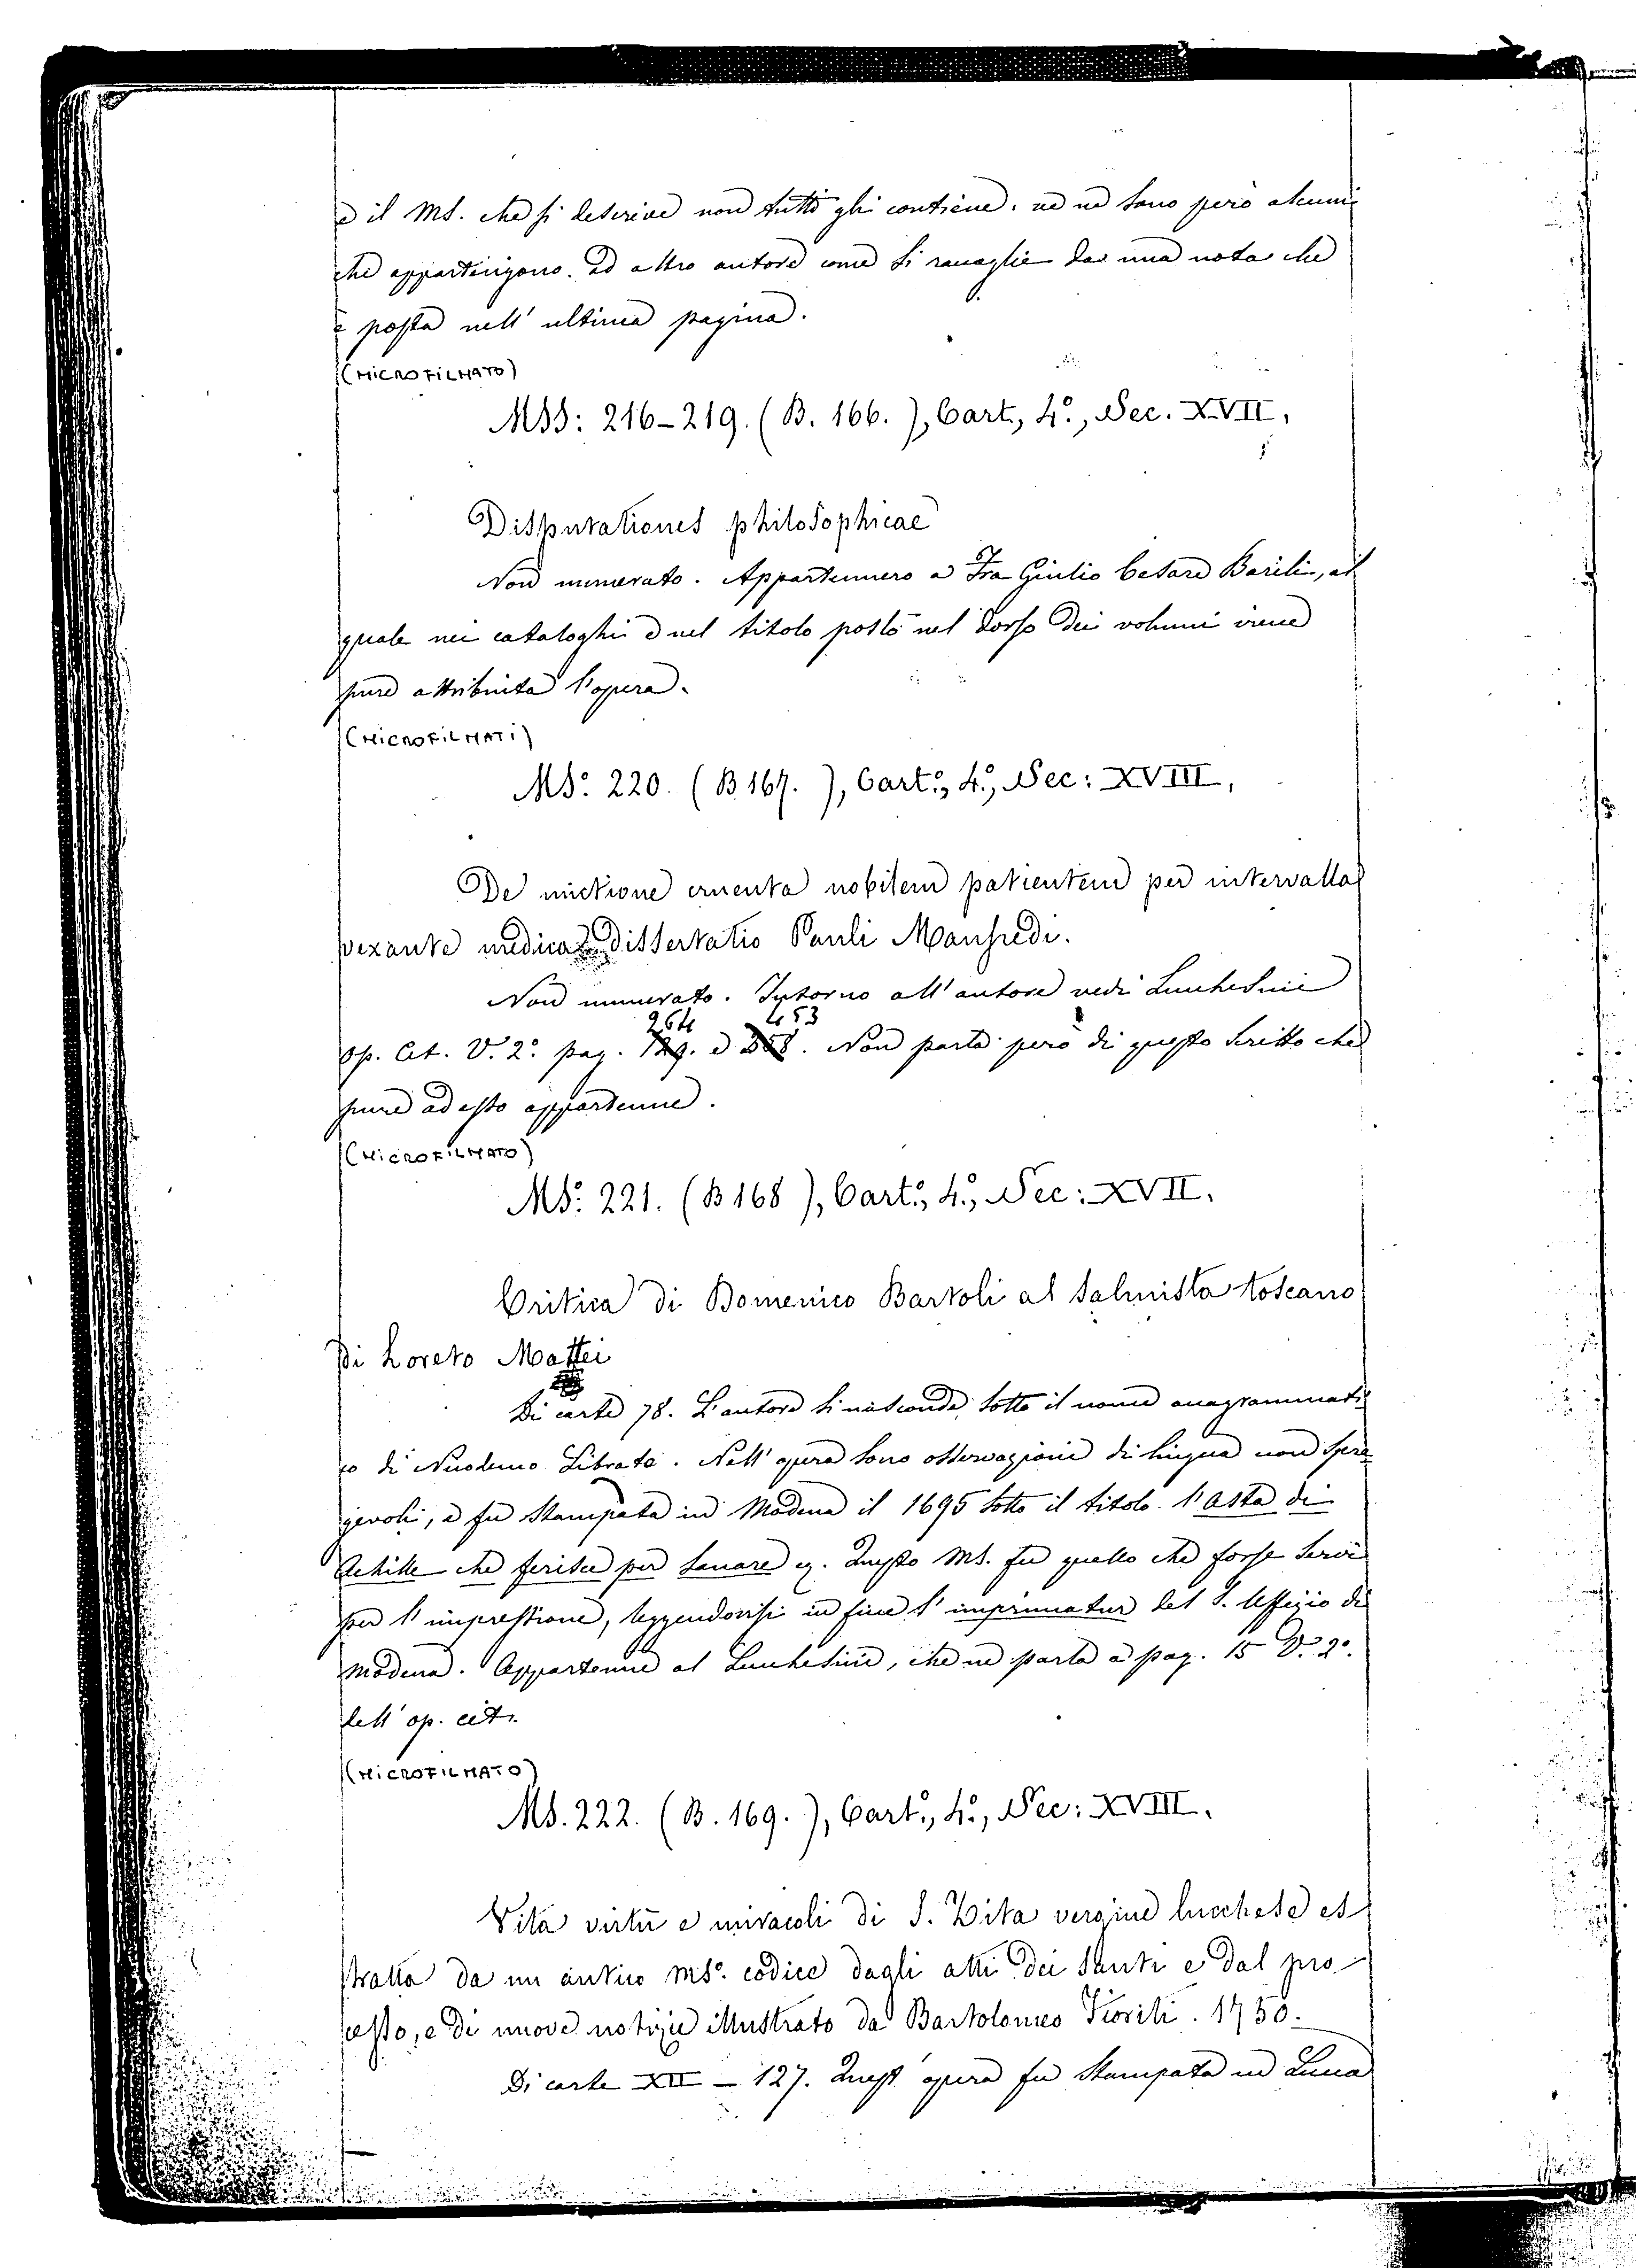 e il MS. che si descrive non tutti gli contiene. ve ne sono però alcuni
che appartengono ad altro autore come si raccoglie da una nota che
è posta nell' ultima pagina.
(MICROFILMATO)
MSS: 216-219. (B. 166.), Cart., 4°., Sec. XVII,
Disputationes philosophicae
Non numerato. Appartennero a Fra Giulio Cesare Barili, al
quale nei cataloghi e nel titolo posto nel dorso dei volumi viene
pure attribuita l'opera.
(MICROFILMATI)
MS: 220. (B 167.), Cart:, 4°., Sec: XVIII,
De mictione cruenta nobilem patientem per intervalla
vexante medica dissertatio Pauli Manfredi.
Non numerato. Intorno all' autore vedi Lucchesini
264 453
op. Cit. V. 2°. pag. e . Non parla però di questo scritto che
pure ad esso appartenne.
(MICROFILMATO)
MS: 221. (B 168), Cart:, 4°., Sec: XVII.
Critica di Domenico Bartoli al Salmista toscano
di Loreto Mattei
Di carte 78. L'autore si nasconde sotto il nome anagrammati
co di Nicodemo Librato. Nell' opera sono osservazioni di lingua non spre
gevoli, e fu stampata in Modena il 1695 sotto il titolo l'Asta di
Achille che ferisce per sanare &. Questo MS. fu quello che forse servì
per l' impressione, leggendovisi in fine l' imprimatur del S. Uffizio di
Modena. Appartenne al Lucchesini, che ne parla a pag. 15 V. 2°.
dell' op. cit.
(MICROFILMATO)
MS. 222. (B. 169.), Cart:, 4°., Sec: XVIII.
Vita virtù e miracoli di S. Zita vergine lucchese es
tratta da un antico ms°. codice dagli atti dei Santi e dal pro
cesso, e di nuove notizie illustrato da Bartolomeo Fioriti. 1750.
Di carte XII - 127. Quest' opera fu stampata in Lucca